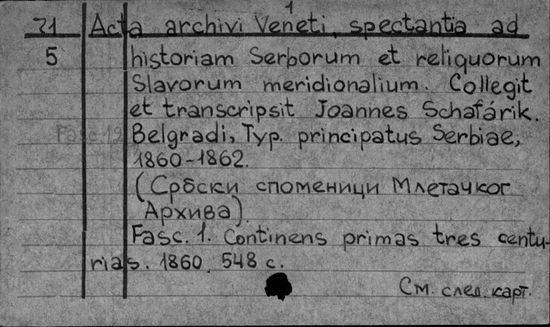 1
21 Acta archivi Veneti, spectantia ad
5 historiam Serborum et reliquorum
Slavorum meridionalium. Collegit
et transcripsit Joannes Schafárik.
Belgradi, Typ. principatus Serbiae,
1860-1862.
(Србски споменици Млетачког
Архива).
Fasc. 1. Continens primas tres centu-
rias. 1860. 548 с.
См. след. карт.